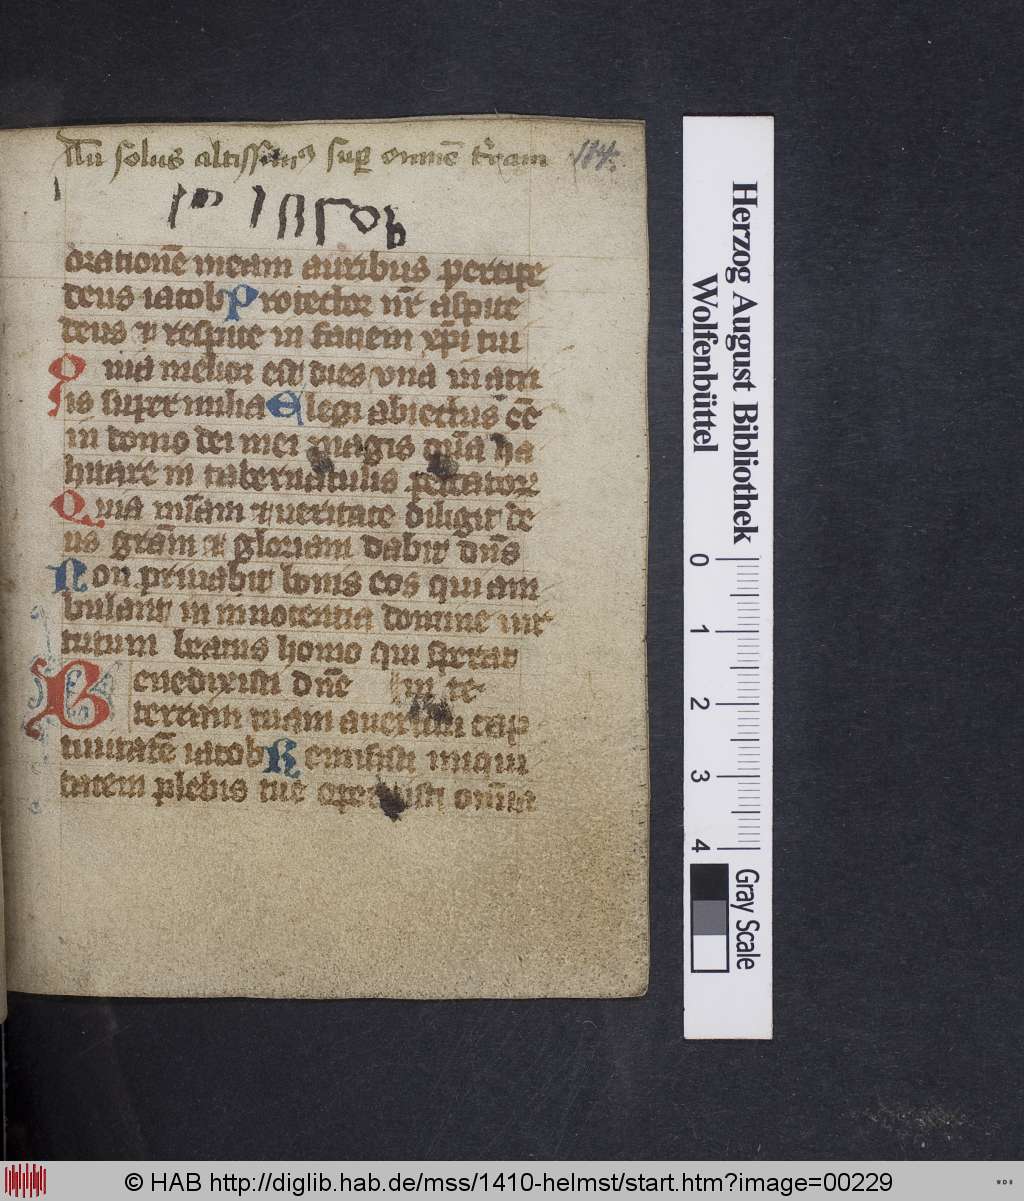 Tu solus altissimus sup omnē t'ram
184.
orationē meam auribus percipe
deus iacob Protector nr̄ aspice
deus ⁊ respice in faciem xp̄i tui
Quia melior est dies vna in atri
is super milia Elegi abiectus eē
in domo dei mei magis quā ha
bitare in tabernaculis peccatoꝝ
Quia mīam ⁊ ueritatē diligit de
us grām ⁊ gloriam dabit dn̄s
Non priuabit bonis eos qui am
bulant in innocentia domine uir
tutum beatus homo qui sperat
Benedixisti dn̄e in te
terram tuam auertisti cap
tiuitatē iacob Remisisti iniqui
tatem plebis tue operuisti omīa
Herzog August Bibliothek
Wolfenbüttel
0
1
2
3
4
Gray Scale
© HAB http://diglib.hab.de/mss/1410-helmst/start.htm?image=00229